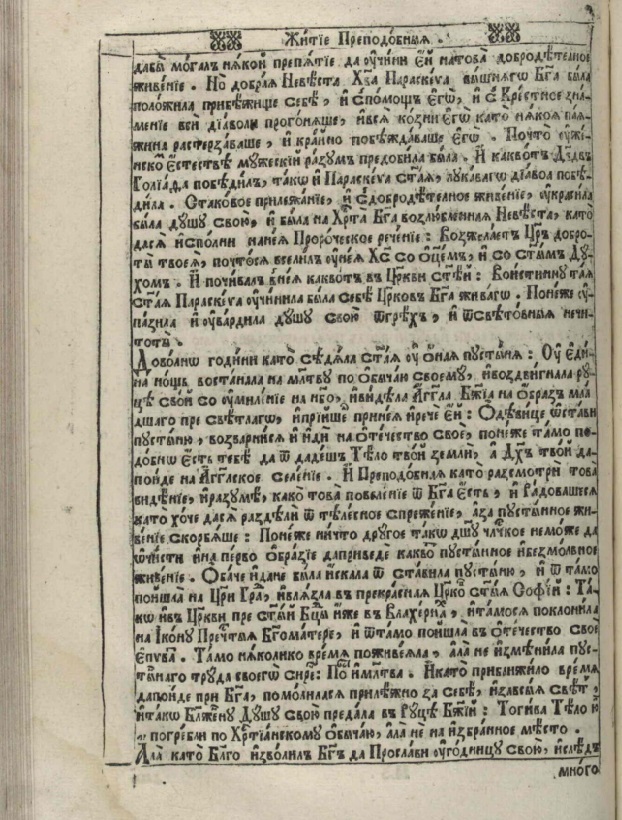 Житїе Преподо́бныѧ .
дабы̀ мо́галъ нѧ́кой препѧ́тїе да ᲂу҆чи́ни є҆́й на това̀ добродѣ́телное
живе́нїе . Но до́браѧ Невѣ́ста Хв҃а Параскеѵа вы́шнѧгѡ Бг҃а была
положи́ла прибѣ́жище себѣ̀, и҆ с по́мощъ є҆гѡ̀, и҆ с Кре́стное зна-
ме́нїе всѝ дїа́воли прогонѧ́ше, и҆ всѧ ко́зни є҆гѡ̀ като нѧ́коѧ паѧ-
жина расте́рзаваше , и҆ кра́йно побѣжда́ваше є҆гѡ̀ . Почто̀ ᲂу҆жѣ́-
нскѡ є҆стествѣ̀ мꙋ́жескїй ра́зꙋмъ предоби́ла была . И҆ какво́тъ Дв҃дъ
Голїа́ѳа побѣди́лъ, та́кѡ и҆ Параскеѵа ст҃а́ѧ, лꙋка́вагѡ дїа́вола побѣ-
ди́ла . С тако́вое прилѣжа́нїе, и҆ с добродѣ́телное живе́нїе, ᲂу҆краси́ла
была дꙋ́шꙋ свою̀, и҆ была на Хр҃та̀ Бг҃а возлю́бленнаѧ Невѣ́ста, като̀
да сѧ и҆спо́лни на не́ѧ Проро́ческое рече́нїе : Возжела́етъ Цр҃ъ добро-
ты̀ твоеѧ̀, почто̀ сѧ всели́лъ ᲂу҆ не́ѧ Хс҃ со ѻ҆ц҃е́мъ, и҆ со ст҃ы́мъ Дꙋ́-
хомъ . И҆ почива́лъ в не́ѧ какво́тъ въ Цр҃кви ст҃е́й : Вои́стиннꙋ таѧ
ст҃а́ѧ Параскеѵа ᲂу҆чини́ла была себѐ Це́рковъ Бг҃а жива́гѡ . Поне́же ᲂу҆-
пази́ла и҆ ᲂу҆варди́ла дꙋ́шꙋ свою̀ ѿ грѣ́хъ, и҆ ѿ свѣто́вныѧ нечи-
тотъ .
Дово́лнѡ годи́ни като̀ сѣдѧ́ла ст҃а́ѧ ᲂу҆ ѻ҆́наѧ пꙋсты́нѧ : Оу҆ є҆ди́-
на но́щь воста́нала на мл҃твꙋ по ѻ҆бы́чаю своемꙋ̀, и҆ воздви́гнала рꙋ-
цѣ̀ своѝ со ᲂу҆миле́нїе на нб҃о, и҆ ви́дѣла А҆гг҃ла Бж҃їѧ на ѻ҆́бразъ мла́-
дшаго пресвѣ́тлагѡ, и҆ прїи́де при неѧ̀ и҆ речѐ є҆́й : Ѽ дѣви́це ѡ҆ста́ви
пꙋсты́ню, возвари́сѧ и҆ и҆дѝ на ѻ҆те́чество своѐ, поне́же та́мо по-
до́бнѡ є҆́сть тебѣ̀ да ѿ даде́шъ Тѣ́ло твоѐ землѝ, а Дх҃ъ тво́й да
по́йде на А҆гг҃лское селе́нїе . И҆ Преподо́бнаѧ като̀ разсмотрѝ това
видѣ́нїе, и҆ разꙋмѣ̀, како̀ това повелѣ́нїе ѿ Бг҃а є҆́сть, и҆ ра́довашесѧ
като̀ хо́че да сѧ разде́ли ѿ тѣле́сное спреже́нїе, а҆ за пꙋсты́нное жи-
ве́нїе скорбѧ́ше : Поне́же ни́что дрꙋго́е та́кѡ дш҃ꙋ чл҃ческое немо́же да
ѡ҆чи́сти и҆ на пе́рво ѡ҆бра́зїе да приведѐ какво̀ пꙋсты́нное и҆ безмо́лвное
живе́нїе . Ѻ҆ба́че и҆ да не была и҆ска́ла ѡ҆ста́вила пꙋсты́ню, и҆ ѿ та́мо
пойшла на Цр҃и Гра́дъ, и҆ влѧ́зла въ прекра́снаѧ Цр҃ко ст҃ы́ѧ Софі́й : Та́-
кѡ и҆ въ Цр҃кви прест҃ы́й Бц҃ы и҆́же въ Влахе́рнѣ, и҆ та́мо сѧ поклони́ла
на І҆ко́нꙋ Преч҃тыѧ Бг҃ома́тере, и҆ ѿ та́мо пойшла въ ѻ҆те́чество своѐ
Є҆пѵва́тъ . Та́мо нѧ́колико вре́мѧ поживе́ѧла , а҆ла̀ не и҆змѣни́ла пꙋс-
ты́ннаго трꙋда̀ своегѡ̀ си́рѣ: По́ и҆ мл҃тва . И҆ като̀ прибли́жило вре́мѧ
да по́йде при Бг҃а, помоли́ласѧ прилѣ́жно за себѐ, и҆ за ве́сь свѣ́т ,
и҆ та́кѡ Бл҃же́нꙋ Дꙋ́шꙋ свою̀ преда́ла в рꙋ́цѣ Бж҃їи : Тоги́ва Тѣ́ло ю҆̀
погре́бли по Хр҃тїа́нскомꙋ ѻ҆бы́чаю, а҆ла̀ не на и҆збра́нное мѣ́сто .
А҆ла̀ като̀ Бл҃го и҆зво́лилъ Бг҃ъ да Просла́ви ᲂу҆го́дницꙋ свою̀, и҆ слѣ́дъ
мно́го